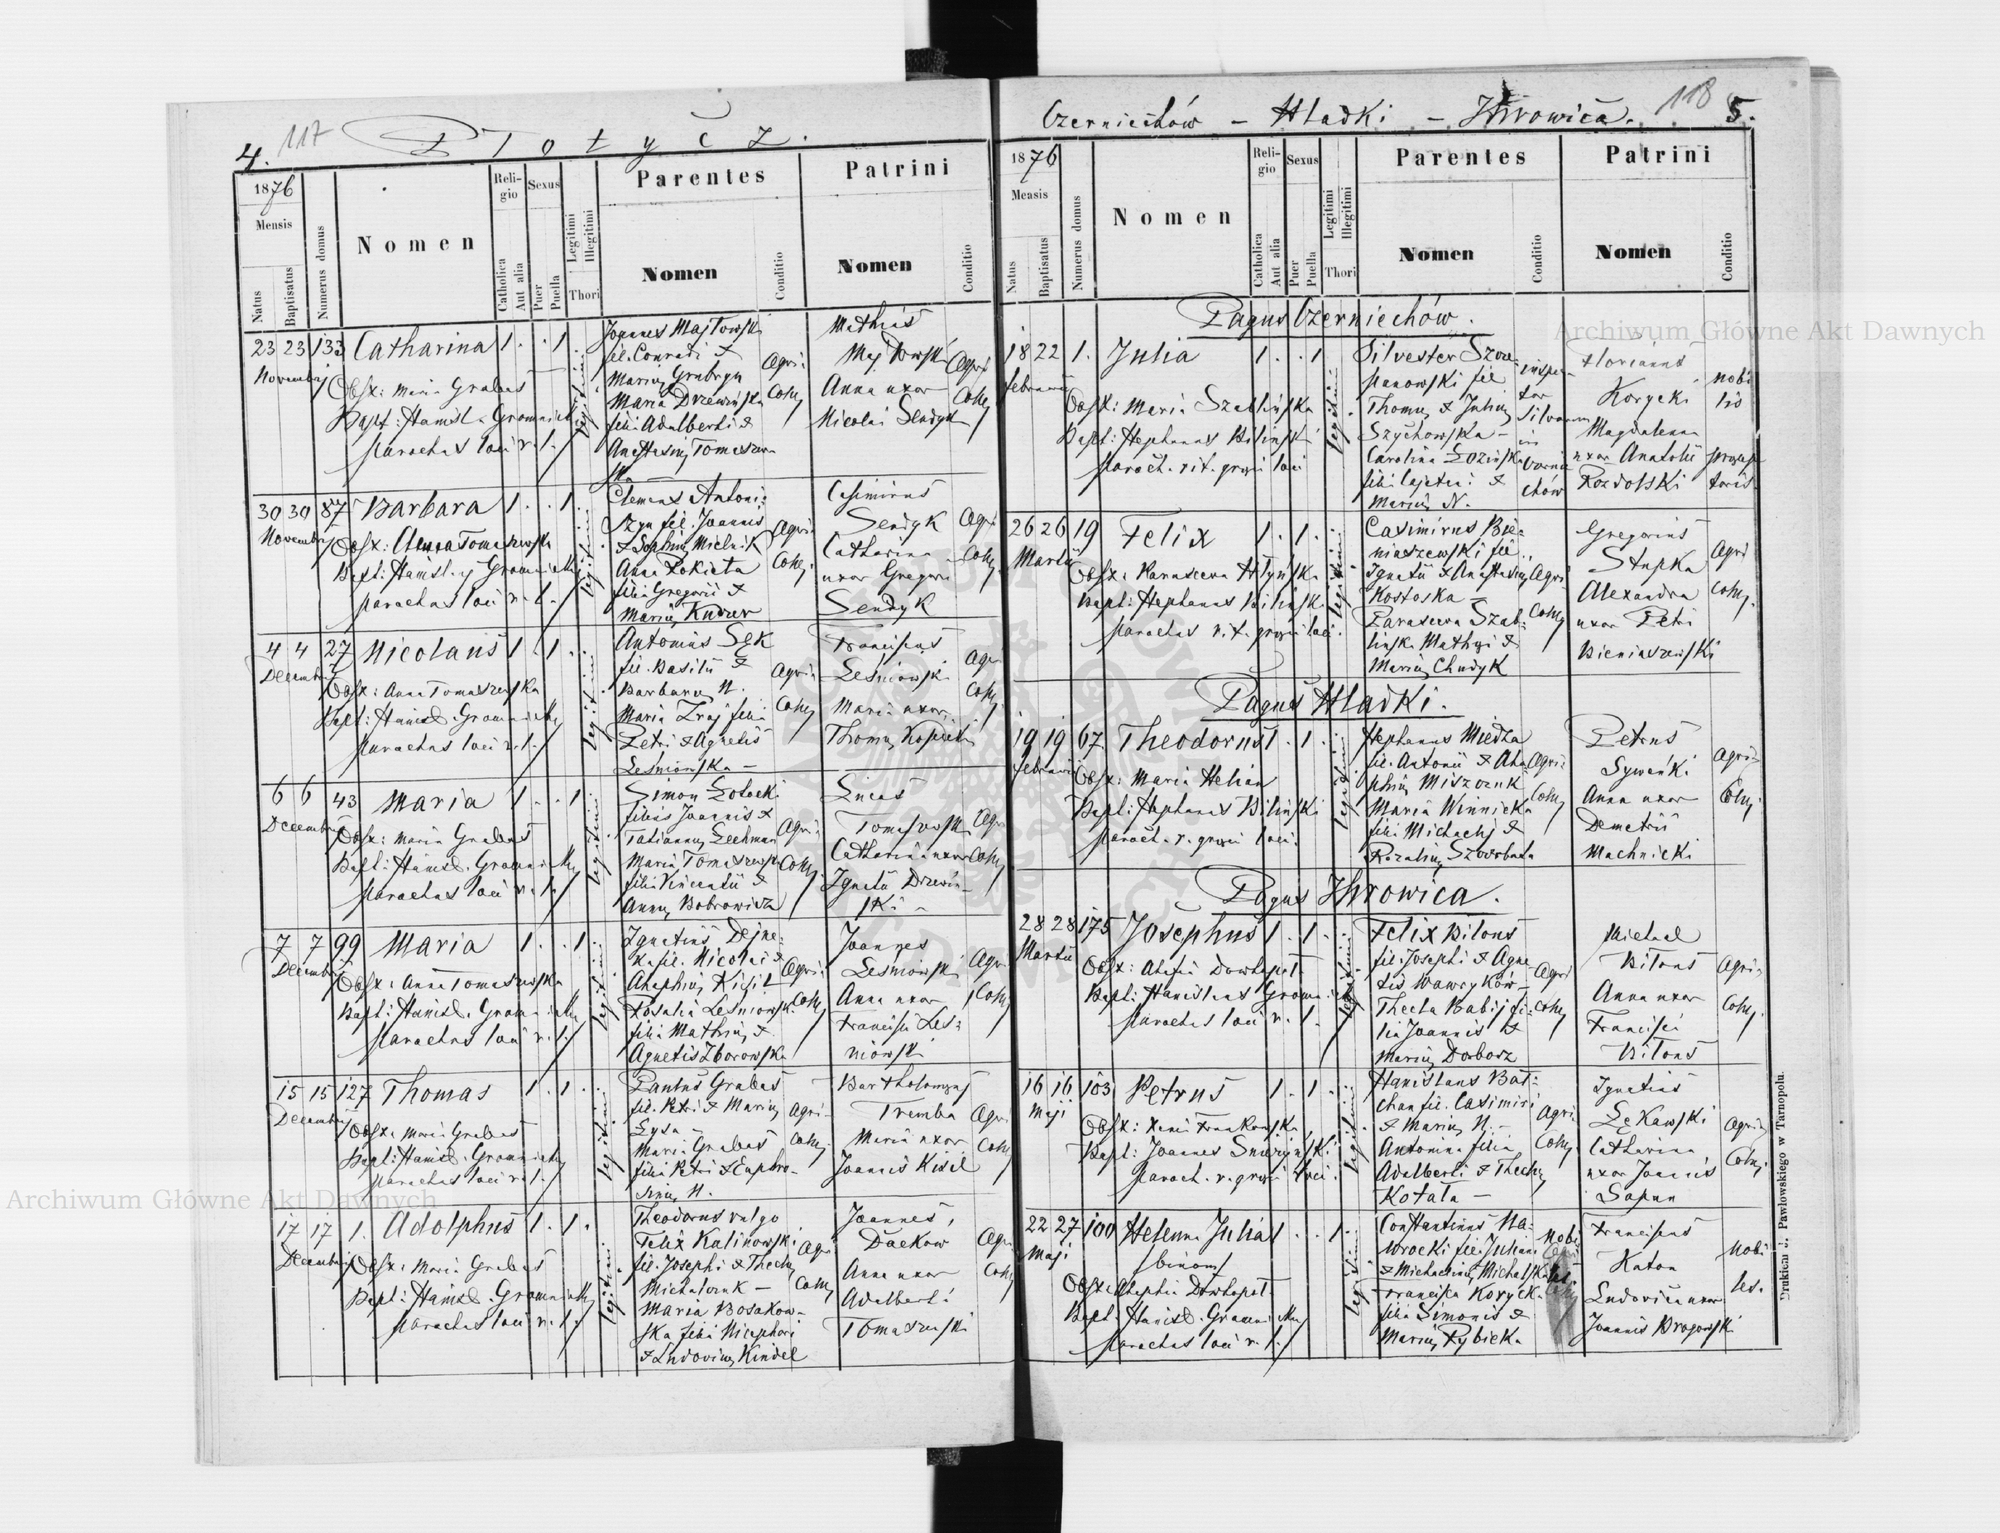 4. 117 Płotycz.
1876
Mensis
Natus
Baptisatus
Numerus domus
Nomen
Religio
Catholica
Aut alia
Sexus
Puer
Puella
Legitimi
Illegitimi
Thori
Parentes
Nomen
Conditio
Patrini
Nomen
Conditio
23 23 133 Catharina 1 . . 1
Novembris
Obst: Maria Grabas
Bapt: Stanisl. Gromnicki
parochus loci r. l.
legitimi
Joannes Majkowski
fil. Conradi &
Mariae
Maria Drzewińska
filia Adalberti &
Anastasiae Tomaszew
ska
Agri
Colae
Mathias
Anna uxor
Nicolai Sendyk
Agri
Colae
30 30 87 Barbara 1 . . 1
Novembris
Obst: Anna Tomaszewska
Bapt: Stanislaus Gromnicki
parochus loci r. l.
legitimi
Clemens Antoni:
szyn fil. Joannis
& Sophiae Mielnik
Anna Łokieta
filia Gregorii &
Mariae
Agri
Colae
Casimirus
Sendyk
Catharina
uxor Gregorii
Sendyk
Agri
Colae
4 4 27 Nicolaus 1 . 1 .
Decembris
Obst: Anna Tomaszewska
Bapt: Stanisl. Gromnicki
parochus loci r. l.
legitimi
Antonius Sęk
fil. Basilii &
Barbarae N.
Maria Zraj filia
Petri & Agnetis
Leśniowska
Agri
Colae
Franciscus
Leśniowski
Maria uxor
Thomae
Agri
Colae
6 6 43 Maria 1 . . 1
Decembris
Obst: Maria Grabas
Bapt: Stanisl. Gromnicki
parochus loci r. l.
legitimi
Simon
filius Joannis &
Tatiannae
Maria Tomaszewska
filia Vincentii &
Annae Bobrowicz
Agri
Colae
Lucas
Catharina uxor
Ignatii Drzewiń
ski
Agri
Colae
7 7 99 Maria 1 . . 1
Decembris
Obst: Anna Tomaszewska
Bapt: Stanisl. Gromnicki
parochus loci r. l.
legitimi
Ignatius Dejne:
ka fil. Nicolai &
Ahaphiae Kisil
Rosalia Leśniowska
filia Mathiae &
Agnetis Zborowska
Agri
Colae
Joannes
Leśniowski
Anna uxor
Francisci Leś:
niowski
Agri
Colae
15 15 127 Thomas 1 . 1 .
Decembris
Obst: Maria Grabas
Bapt: Stanisl. Gromnicki
parochus loci r. l.
legitimi
Paulus Grabas
fil. Petri & Mariae
Łysa
Maria Grabas
filia Petri & Euphro
sinae N.
Agri
Colae
Bartholomaeus
Tremba
Maria uxor
Joannis Kisil
Agri
Colae
17 17 1. Adolphus 1 . 1 .
Decembris
Obst: Maria Grabas
Bapt: Stanisl. Gromnicki
parochus loci r. l.
legitimi
Theodorus vulgo
Felix Kalinowski
fil. Josephi & Theclae
Michalczuk
Maria Bosakow
ska filia Nicephori
& Ludovicae Kindel
Agri
Colae
Joannes
Anna uxor
Adalberti
Tomaszewski
Agri
Colae
Czerniechów – Hladki – Ihrowica. 118 5.
1876
Mensis
Natus
Baptisatus
Numerus domus
Nomen
Religio
Catholica
Aut alia
Sexus
Puer
Puella
Legitimi
Illegitimi
Thori
Parentes
Nomen
Conditio
Patrini
Nomen
Conditio
Pagus Czerniechów.
18 22 1. Julia 1 . . 1
Februarii
Obst: Maria Szablińska
Bapt: Stephanus Biliński
paroch. rit. graeci loci
legitimi
Silvester Szcze
panowski fil
Thomae & Juliae
Szychowska
Carolina Łozińska
filia Cajetani &
Mariae N.
inspe
ctor
Silvarum
in
Czernie
chów
Florianus
Korycki
Magdalena
uxor Anatolii
Rozdolski
nobi
lis
26 26 19 Felix 1 . 1 .
Martii
Obst: Parasceva Hłyńska
Bapt: Stephanus Biliński
parochus r. t. graeci loci
legitimi
Casimirus Bie
niaszewski fil
Ignatii & Anastasiae
Kostoska
Parasceva Szab
lińska Mathaei &
Mariae Chudyk
Agri
Colae
Gregorius
Stupka
Alexandra
uxor Petri
Bieniaszewski
Agri
Colae
Pagus Hladki.
19 19 67 Theodorus 1 . 1 .
Februarii
Obst: Maria Helian
Bapt: Stephanus Biliński
paroch. r. graeci loci.
legitimi
Stephanus Miedza
fil. Antonii & Aha
phiae Miszczuk
Maria Winnicka
filia Michaelis &
Rozaliae
Agri
Colae
Petrus
Sywański
Anna uxor
Demetrii
Machnicki
Agri
Colae
Pagus Ihrowica.
28 28 175 Josephus 1 . 1 .
Martii
Obst: Ahafia Dowhopot
Bapt: Stanislaus Gromnicki
parochus loci r. l.
legitimi
Felix Bilous
fil. Josephi & Agne
tis Wawryków
Thecla Babij fi:
lia Joannis &
Mariae Dorbosz
Agri
Colae
Michael
Bilous
Anna uxor
Francisci
Bilous
Agri
Colae
16 16 103 Petrus 1 . 1 .
Maji
Obst: Xenia Frankowska
Bapt: Joannes
paroch. r. graeci loci.
legitimi
Stanislaus Bał:
chan fil. Casimiri
& Mariae N.
Antonina filia
Adalberti & Theclae
Kotała
Agri
Colae
Ignatius
Łękawski
Catharina
uxor Joannis
Sapun
Agri
Colae
22 27 100 Helena Julia 1 . . 1
Maji
(binom)
Obst: Ahaphia Dowhopot
Bapt: Stanisl. Gromnicki
parochus loci r. l.
legitimi
Constantinus Na:
wrocki fil. Juliani
& Michaelinae Michalska
Francisca Korycka
filia Simonis &
Mariae Rybicka
Nobi
les
Franciscus
Katon
Ludovica uxor
Joannis Brogowski
Nobi
les.
Drukiem J. Pawłowskiego w Tarnopolu.
Archiwum Główne Akt Dawnych
Archiwum Główne Akt Dawnych